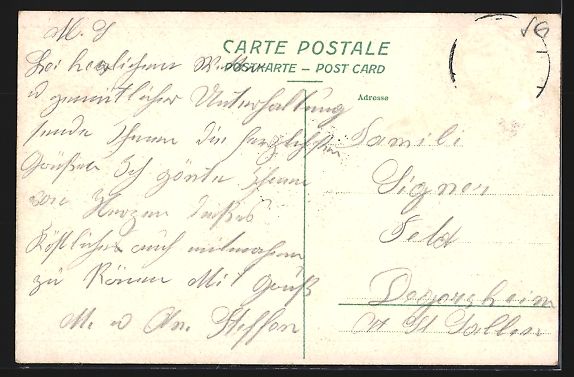 CARTE POSTALE
POSTKARTE – POST CARD
Adresse
M. S
Bei herzlichem Wetter
u gemütlicher Unterhaltung
sende Ihnen die herzlichsten
Grüße Ich gönte Ihnen
von Herzen
Köstliche auch mitmachen
zu Können Mit Gruß
M. u An. Steffen
Famili
Signer
Feld
Degersheim
St Gallen